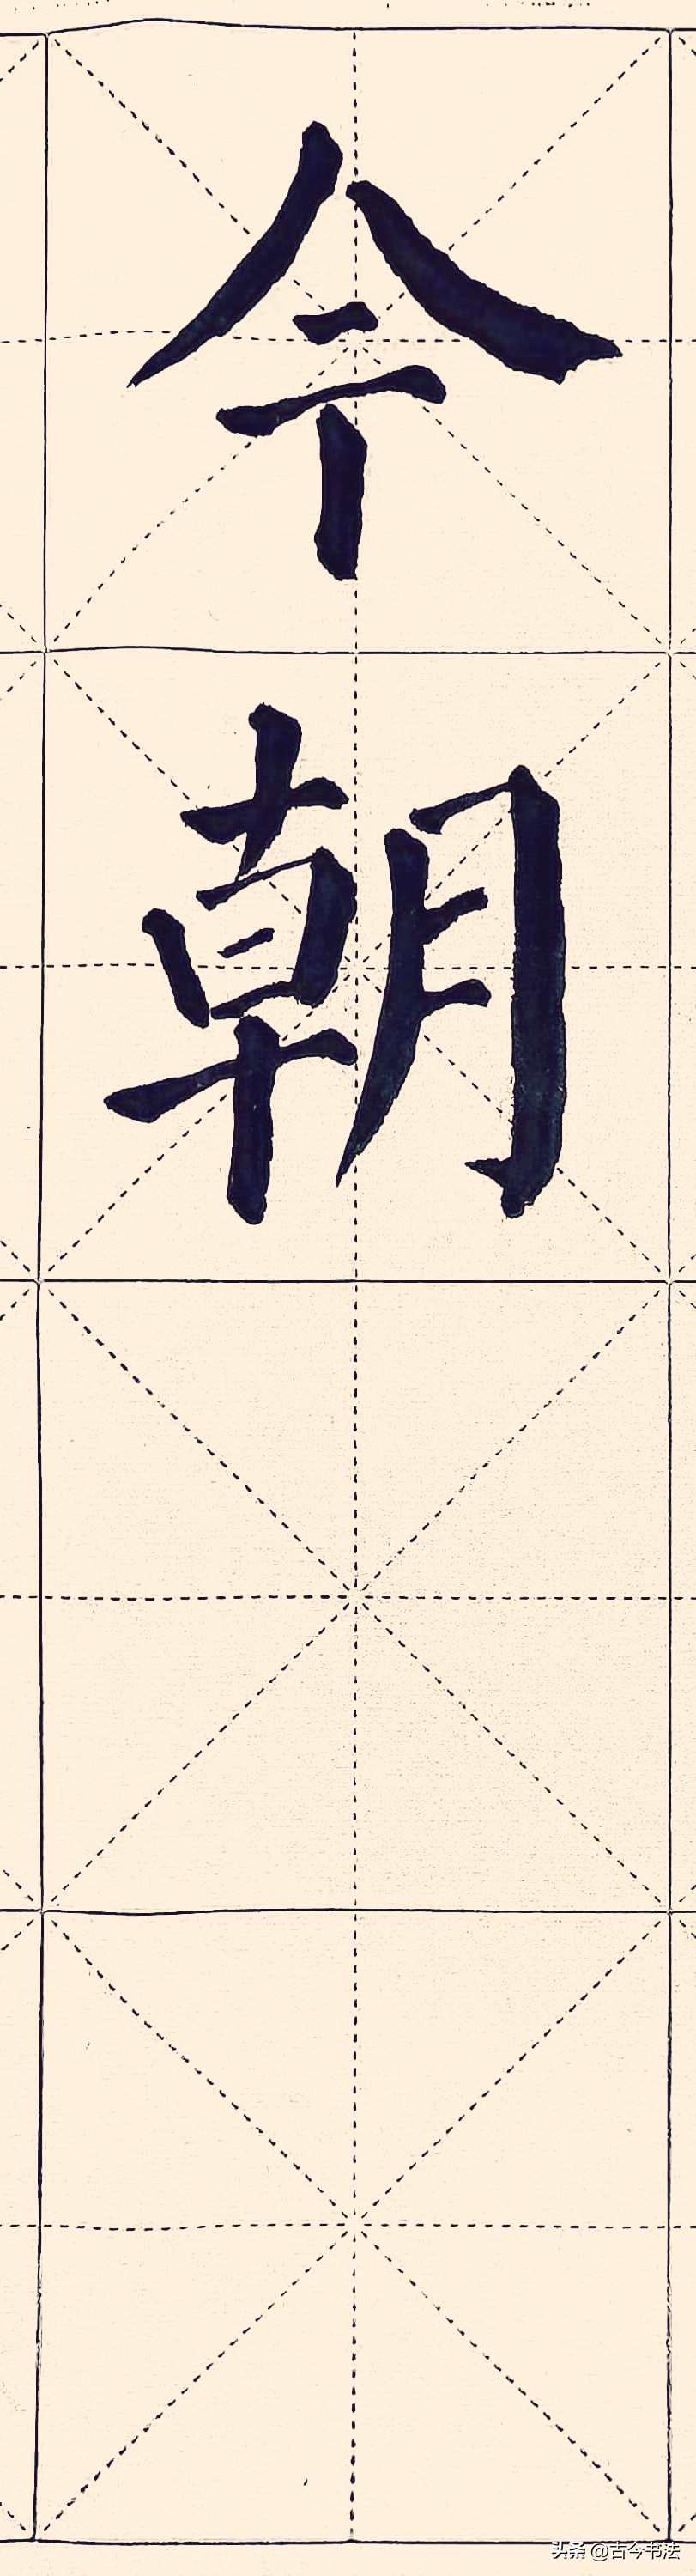 今朝
头条 @古今书法